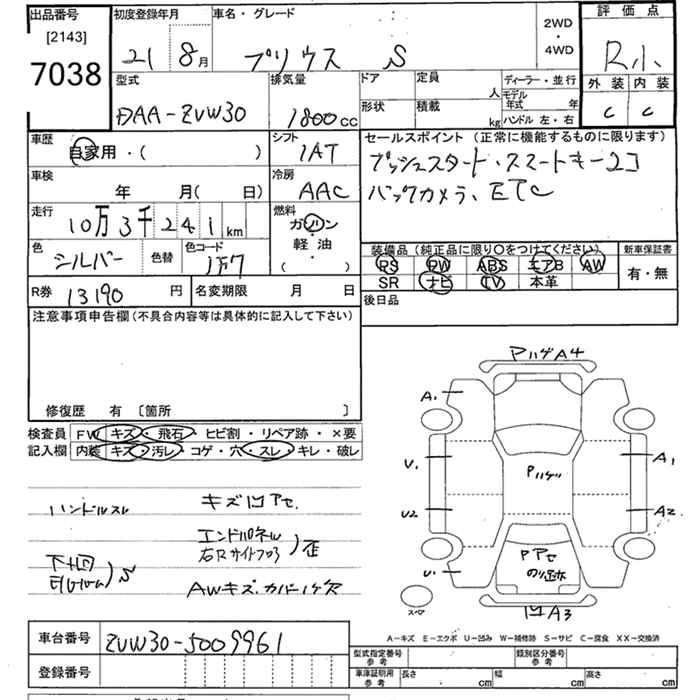 出品番号
[2143]
7038
初度登録年月
21 8月
車名・グレード
プリウス S
2WD
・
4WD
評価点
R小
外装 内装
C C
型式
DAA-ZVW30
排気量
1800cc
ドア
形状
定員
人
積載
kg
ディーラー・並行
モデル
年式 年
ハンドル 左・右
車歴
自家用・( )
シフト
IAT
セールスポイント (正常に機能するものに限ります)
プッシュスタート・スマートキー2コ
バックカメラ、ETC
車検
年 月( 日)
冷房
AAC
走行
10万3千241km
燃料
ガソリン
・
軽油
( )
色
シルバー
色替
色コード
1F7
装備品 (純正品に限り○をつけてください)
PS PW ABS エアB AW
SR ナビ TV 本革
新車保証書
有・無
R券
13190円
名変期限 月 日
後日品
注意事項申告欄 (不具合内容等は具体的に記入して下さい)
修復歴 有 〔箇所 〕
検査員 FW キズ・飛石・ヒビ割・リペア跡・×要
記入欄 内装 キズ・汚レ・コゲ・穴・スレ・キレ・破レ
ハンドルスレ
キズ凹アセ
エンドパネル
右Rサイドフロア 歪
S
AWキズ.カバーハゲ欠
PハゲA4
A1
U1
A1
Pハゲ
U2
A2
Pアセ
U1
凹A3
A-キズ E-エクボ U-凹み W-補修跡 S-サビ C-腐食 XX-交換済
車台番号
ZVW30-5009961
登録番号
型式指定番号
参考
類別区分番号
参考
車庫証明用
参考
長さ cm
幅 cm
高さ cm